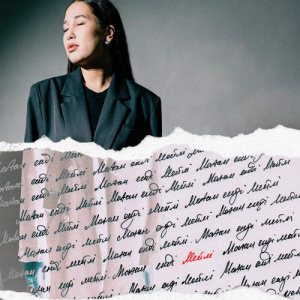 Маған енді Мейлі Маған енді Мейлі Маған енді
Маған енді Мейлі Маған енді Мейлі Маған енді
Маған енді Мейлі Маған енді Мейлі Маған
Маған енді Мейлі Маған енді Мейлі
Маған енді Мейлі Маған енді Мейлі
Маған енді Мейлі. Маған енді Мейлі Маған енді мейлі
Маған енді мейлі. Маған енді Мейлі Маған енді
енді мейлі Маған енді мейлі